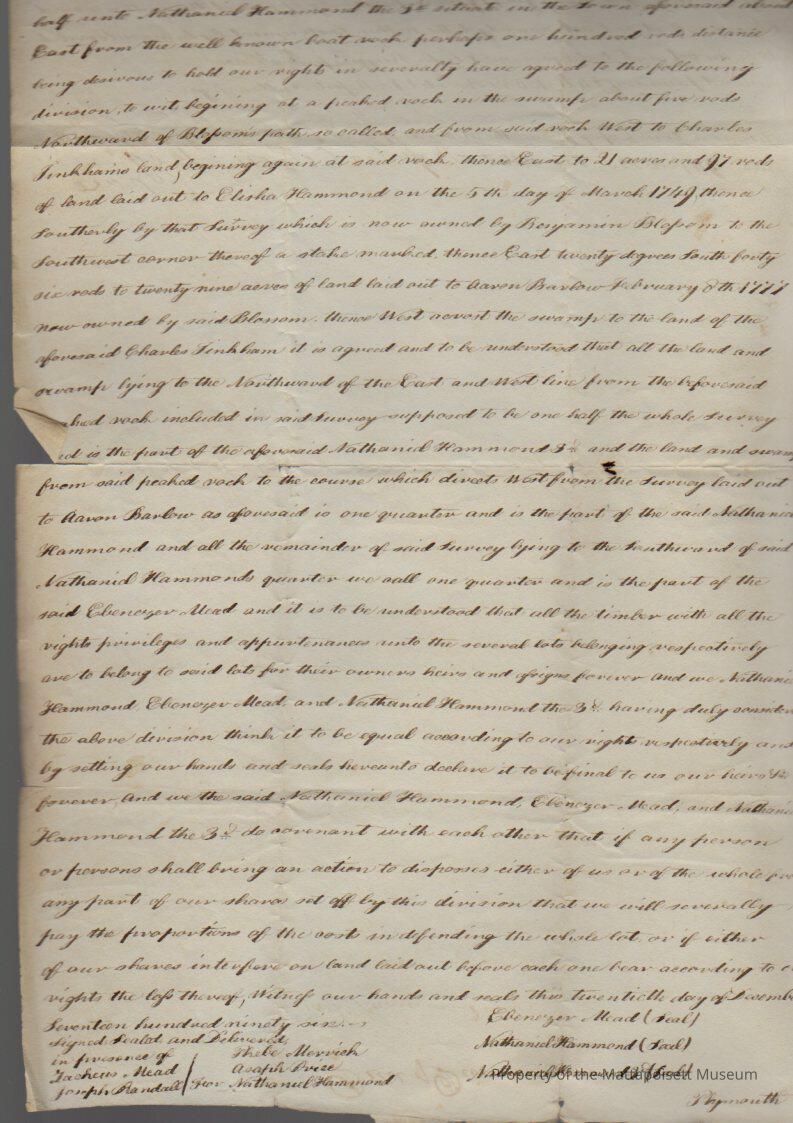 half unto Nathaniel Hammond the 3d situate in the Town aforesaid about
East from the well known boat rock perhaps one hundred rods distance
being desirous to hold our rights in severalty have agreed to the following
division, to wit, begining at a peaked rock in the swamp about five rods
Northward of Blossoms path so called, and from said rock West to Charles
Tinkhams land, begining again at said rock, thence East to 21 acres and 97 rods
of land laid out to Elisha Hammond on the 5th day of March 1749, thence
Southerly by that Survey which is now owned by Benjamin Blossom to the
Southwest corner thereof a stake marked, thence East twenty degrees South forty
six rods to twenty nine acres of land laid out to Aaron Barlow February 8th 1777
now owned by said Blossom. thence West acrost the swamp to the land of the
aforesaid Charles Tinkham it is agreed and to be understood that all the land and
swamp lying to the Northward of the East and West line from the beforesaid
aked rock included in said Survey supposed to be one half the whole Survey
d is the part of the aforesaid Nathaniel Hammond 3d and the land and swam
from said peaked rock to the course which directs West from the Survey laid out
to Aaron Barlow as aforesaid is one quarter and is the part of the said Nathanie
Hammond and all the remainder of said Survey lying to the Southward of said
Nathaniel Hammonds quarter we call one quarter and is the part of the
said Ebenezer Mead and it is to be understood that all the timber with all the
rights privileges and appurtenances unto the several lots belonging respectively
are to belong to said lots for their owners heirs and assigns forever and we Nathanie
Hammond, Ebenezer Mead, and Nathaniel Hammond the 3d, having duly consider
the above division think it to be equal according to our right respectively and
by setting our hands and seals hereunto declare it to be final to us our heirs &c
forever, And we the said Nathaniel Hammond, Ebenezer Mead, and Nathanie
Hammond the 3d do covenant with each other that if any person
or persons shall bring an action to disposses either of us or of the whole fro
any part of our shares set off by this division that we will severally
pay the proportions of the costs in defending the whole lot, or if either
of our shares interfere on land laid out before each one bear according to o
rights the loss thereof, Witness our hands and seals this twentieth day of Decemb
Seventeen hundred ninety six.
Ebenezer Mead (Seal)
Signed Sealed and Delivered,
in presence of Phebe Merrick
Nathaniel Hammond (Seal)
Zacheus Mead Asaph Price
Joseph Randall For Nathaniel Hammond
Property of the Mattapoisett Museum
Plymouth